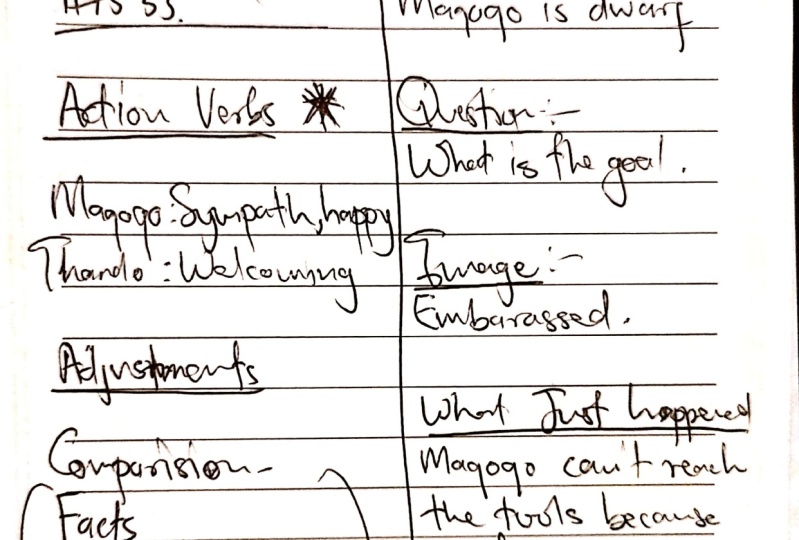 Action Verbs
Magogo: Sympath, happy
Thando: Welcoming
Adjustments
Comparision -
Facts
Magogo is dwarf
Question:-
What is the goal.
Image:-
Embarassed.
What Just happened
Magogo can't reach
the tools because